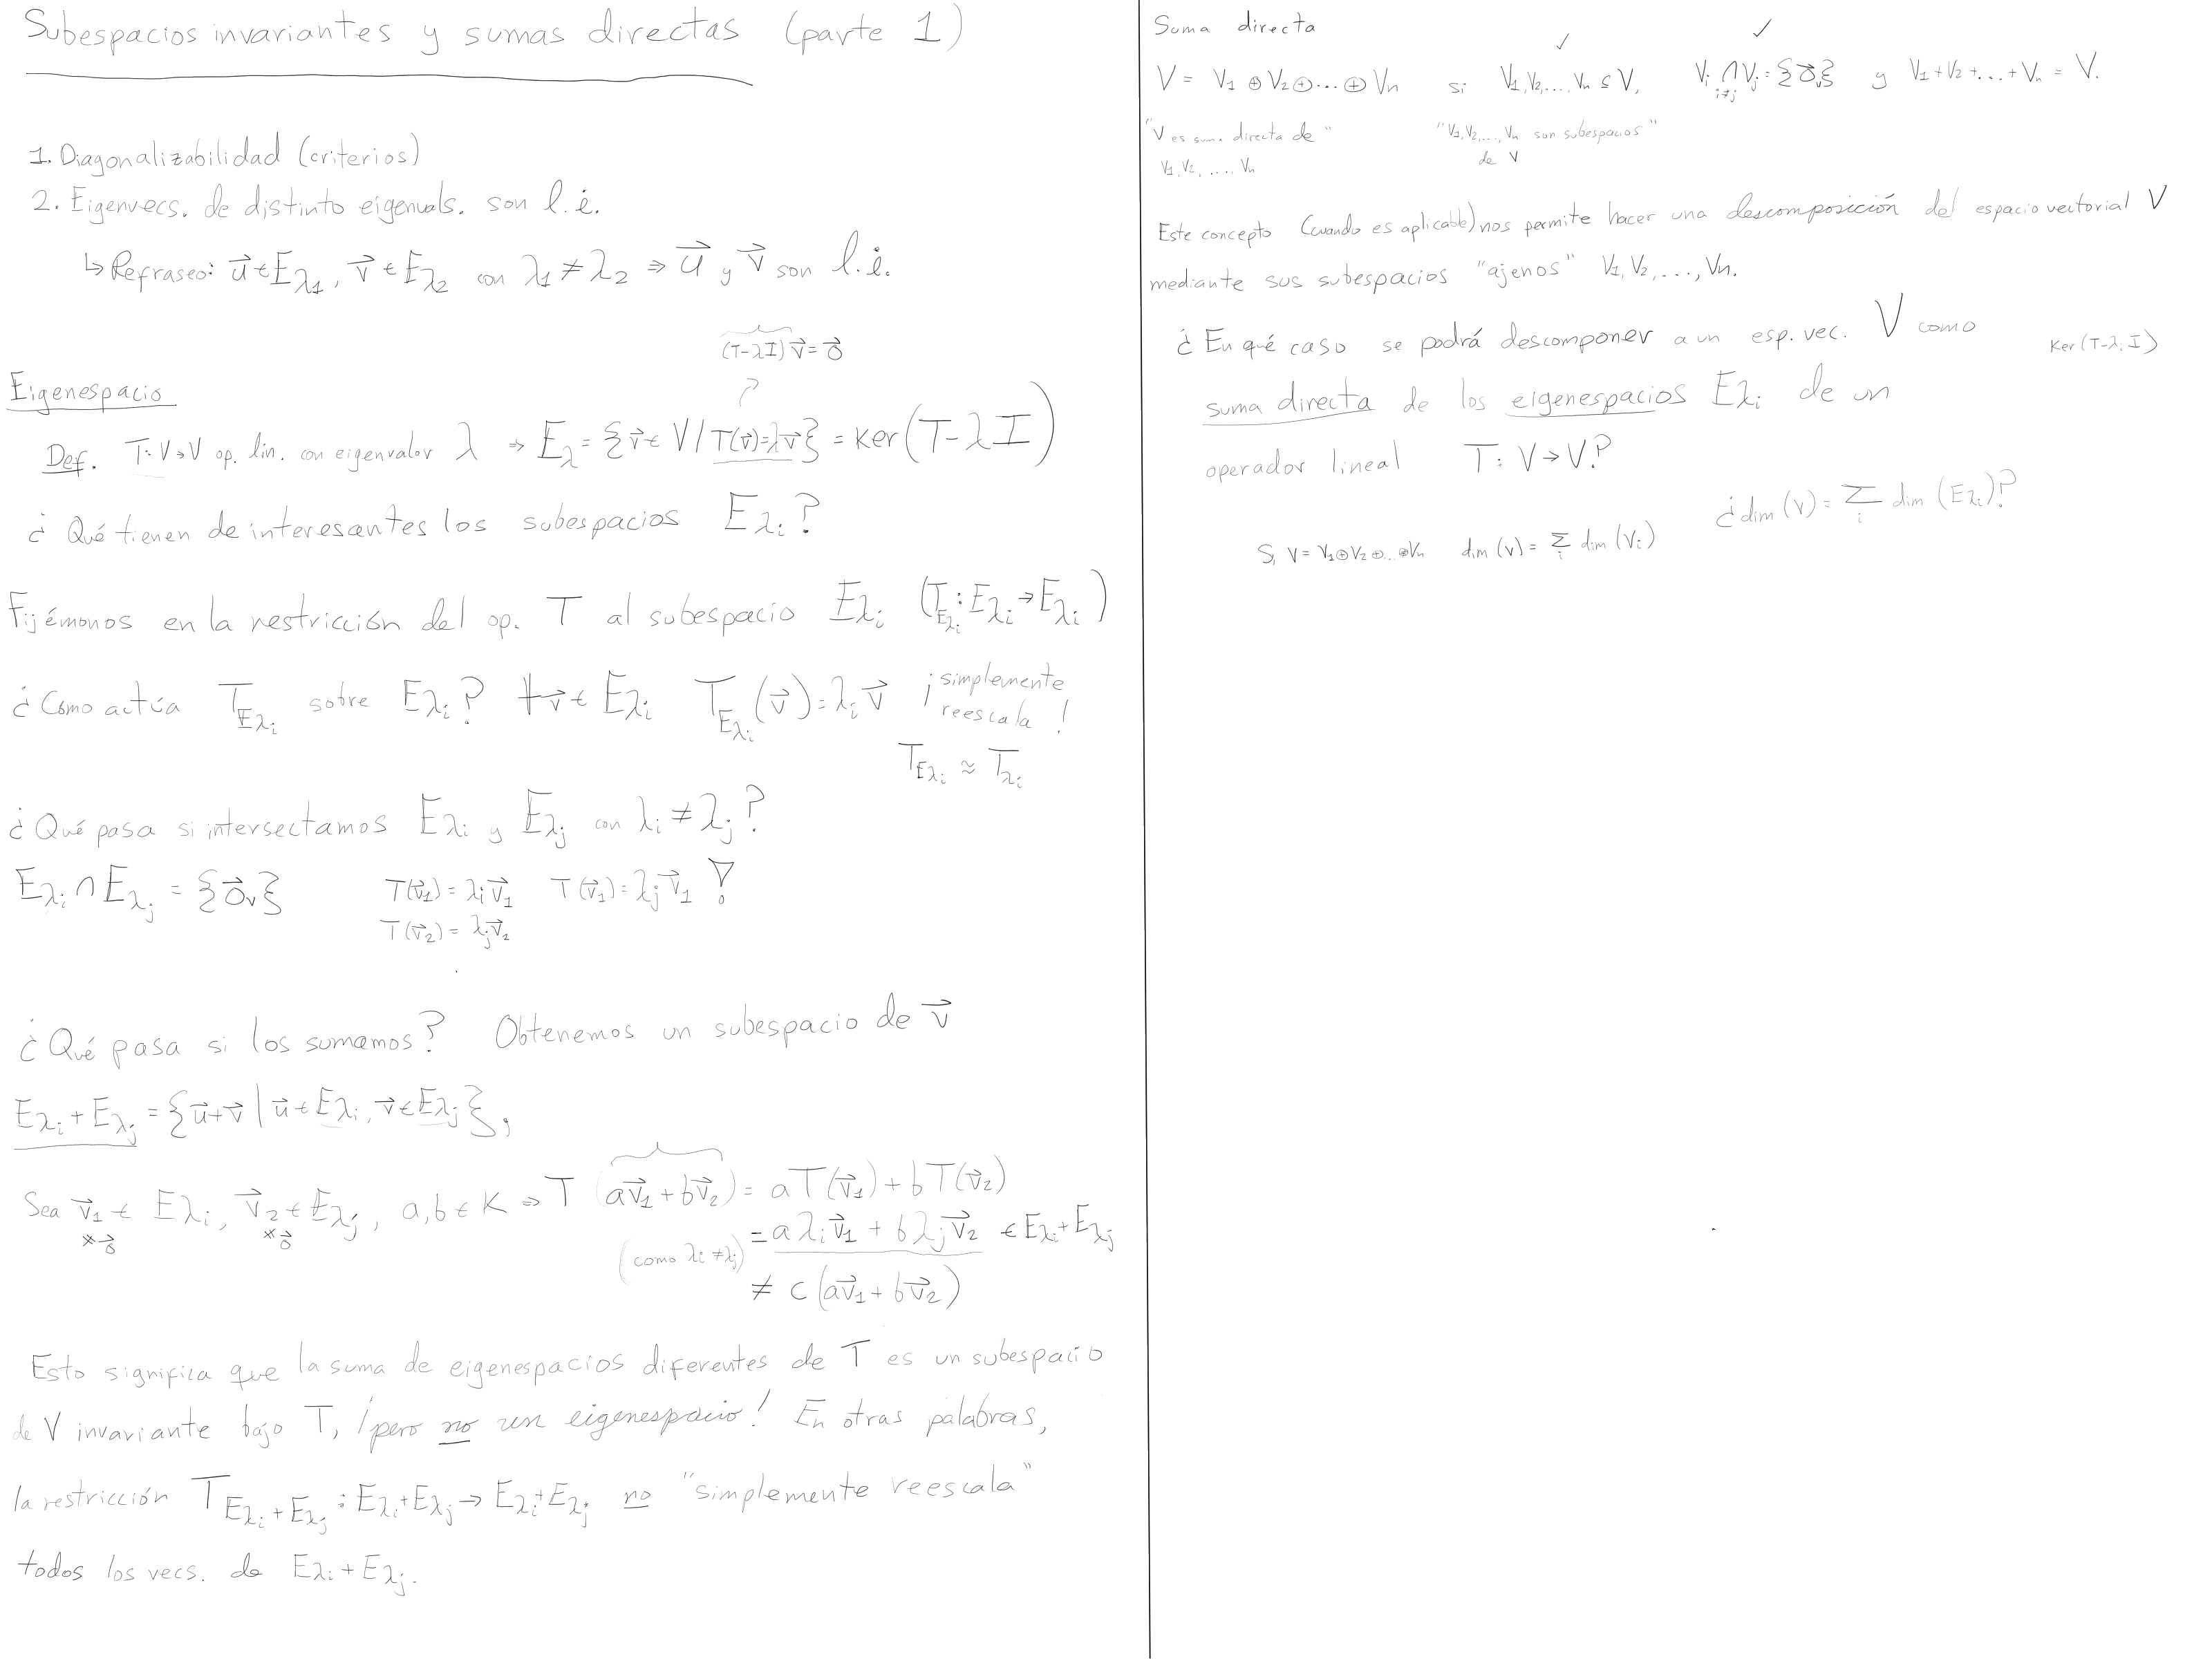 Subespacios invariantes y sumas directas (parte 1)
1. Diagonalizabilidad (criterios)
2. Eigenvecs. de distinto eigenvals. son l.i.
↳ Refraseo: u⃗ ∈ E_λ1, v⃗ ∈ E_λ2 con λ1 ≠ λ2 ⇒ u⃗ y v⃗ son l.i.
(T-λI) v⃗ = 0⃗
Eigenespacio
Def. T: V→V op. lin. con eigenvalor λ ⇒ E_λ = {v⃗ ∈ V / T(v⃗)=λv⃗} = Ker(T-λI)
¿Qué tienen de interesantes los subespacios E_λi?
Fijémonos en la restricción del op. T al subespacio E_λi (T_E_λi : E_λi → E_λi)
¿Cómo actúa T_E_λi sobre E_λi? ∀v⃗ ∈ E_λi T_E_λi(v⃗) = λi v⃗ ¡simplemente
reescala!
T_E_λi ≈ T_λi
¿Qué pasa si intersectamos E_λi y E_λj con λi ≠ λj?
E_λi ∩ E_λj = {0⃗_V} T(v⃗1) = λi v⃗1 T(v⃗1) = λj v⃗1 !
T(v⃗2) = λj v⃗2
¿Qué pasa si los sumamos? Obtenemos un subespacio de v⃗
E_λi + E_λj = {u⃗+v⃗ | u⃗ ∈ E_λi, v⃗ ∈ E_λj},
Sea v⃗1 ∈ E_λi, v⃗2 ∈ E_λj, a,b ∈ K ⇒ T (av⃗1 + bv⃗2) = aT(v⃗1) + bT(v⃗2)
≠0⃗ ≠0⃗
= aλi v⃗1 + bλj v⃗2 ∈ E_λi + E_λj
(como λi ≠ λj)
≠ c(av⃗1 + bv⃗2)
Esto significa que la suma de eigenespacios diferentes de T es un subespacio
de V invariante bajo T, ¡pero no un eigenespacio! En otras palabras,
la restricción T_E_λi+E_λj : E_λi+E_λj → E_λi+E_λj no "simplemente reescala"
todos los vecs. de E_λi + E_λj.
Suma directa
✓ ✓
V = V1 ⊕ V2 ⊕ ... ⊕ Vn si V1, V2, ..., Vn ⊆ V, Vi ∩ Vj = {0⃗_V} y V1 + V2 + ... + Vn = V.
i≠j
"V es suma directa de" "V1, V2, ..., Vn son subespacios"
V1, V2, ..., Vn de V
Este concepto (cuando es aplicable) nos permite hacer una descomposición del espacio vectorial V
mediante sus subespacios "ajenos" V1, V2, ..., Vn.
¿En qué caso se podrá descomponer a un esp. vec. V como
Ker(T-λi I)
suma directa de los eigenespacios E_λi de un
operador lineal T: V→V?
¿dim (V) = Σ_i dim (E_λi)?
Si V = V1⊕V2⊕...⊕Vn dim (V) = Σ_i dim (Vi)